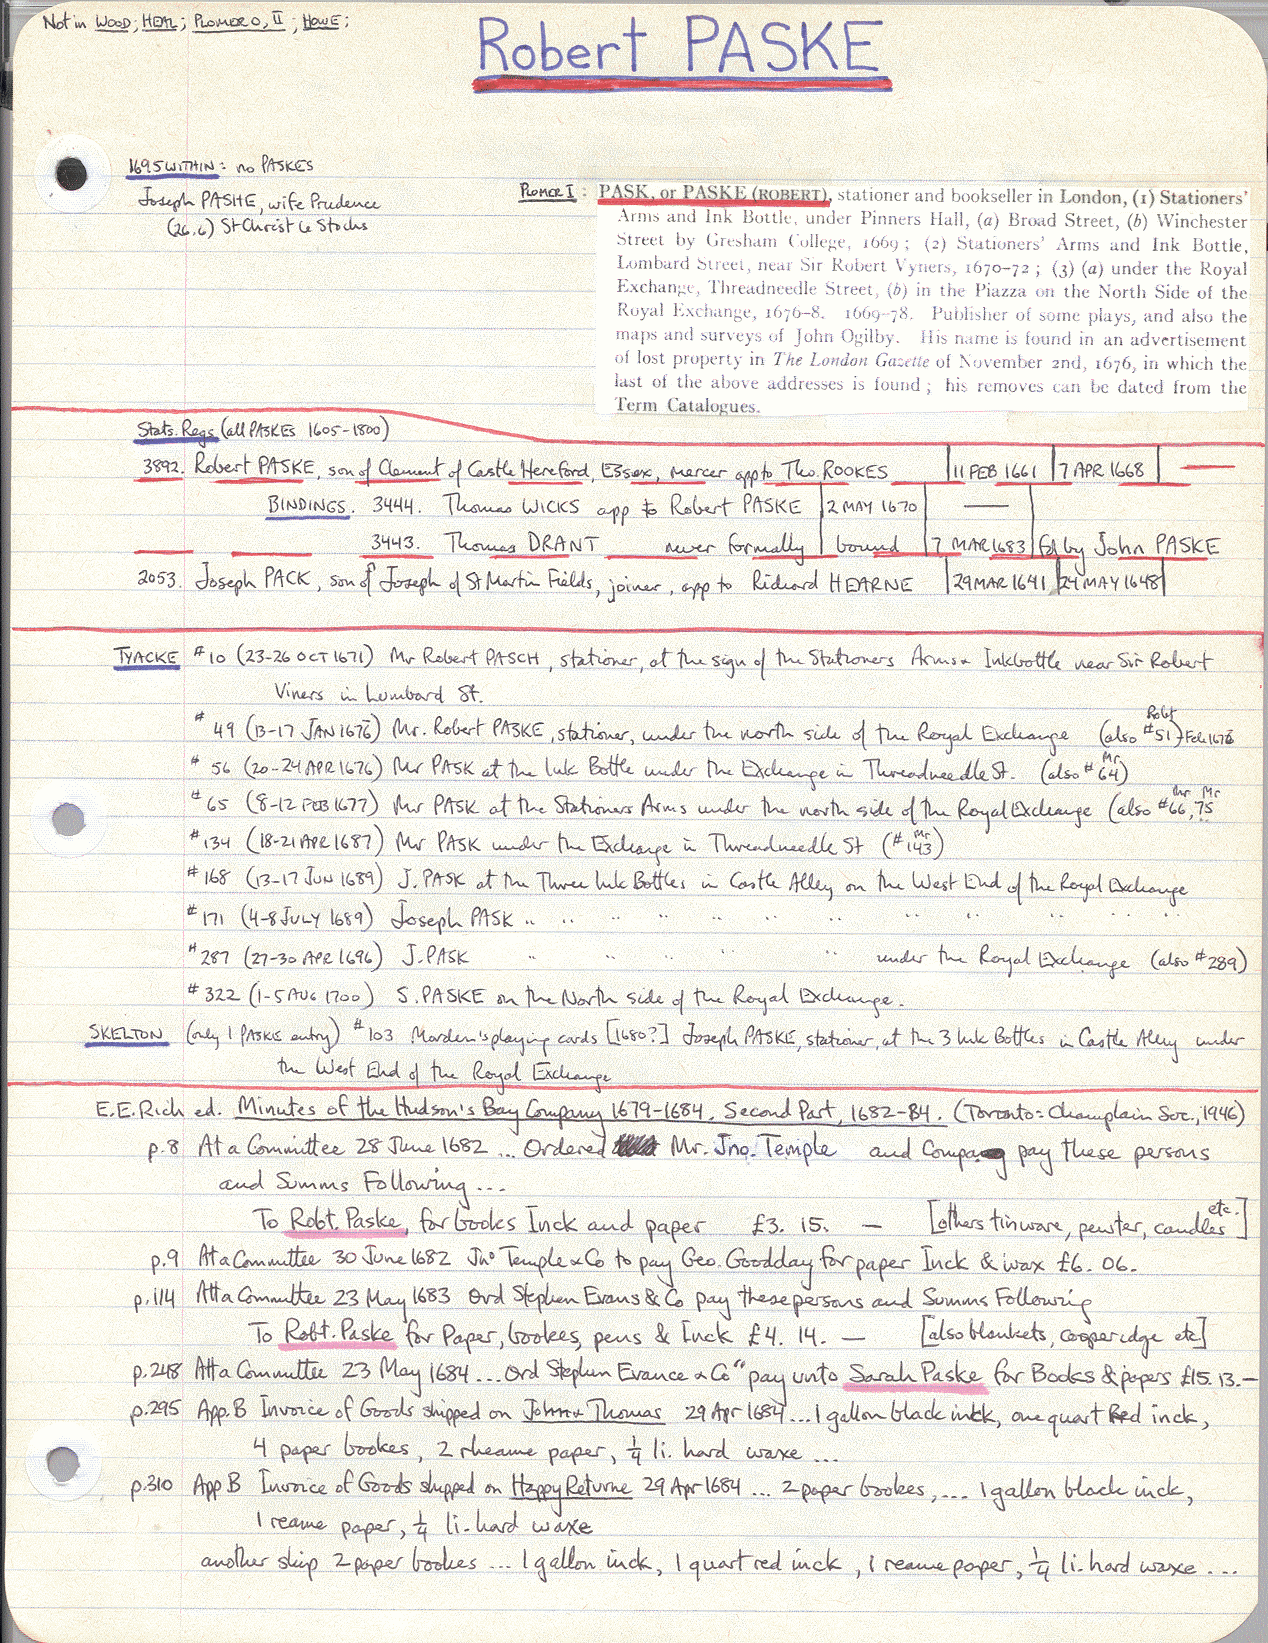 Not in WOOD; HEAL; PLOMER O, II; HOWE;
Robert PASKE
1695 WITHIN: no PASKES
Joseph PASHE, wife Prudence
(26.6) St Christ le Stocks
PLOMER I: PASK, or PASKE (ROBERT), stationer and bookseller in London, (1) Stationers'
Arms and Ink Bottle, under Pinners Hall, (a) Broad Street, (b) Winchester
Street by Gresham College, 1669; (2) Stationers' Arms and Ink Bottle,
Lombard Street, near Sir Robert Vyners, 1670-72; (3) (a) under the Royal
Exchange, Threadneedle Street, (b) in the Piazza on the North Side of the
Royal Exchange, 1676-8. 1669-78. Publisher of some plays, and also the
maps and surveys of John Ogilby. His name is found in an advertisement
of lost property in The London Gazette of November 2nd, 1676, in which the
last of the above addresses is found; his removes can be dated from the
Term Catalogues.
Stats. Regs (all PASKES 1605-1800)
3892. Robert PASKE, son of Clement of Castle Hereford, Essex, mercer app to Tho. ROOKES | 11 FEB 1661 | 7 APR 1668 | —
BINDINGS. 3444. Thomas WICKS app to Robert PASKE | 2 MAY 1670 | —
3443. Thomas DRANT never formally | bound | 7 MAR 1683 | fd by John PASKE
2053. Joseph PACK, son of Joseph of St Martin Fields, joiner, app to Richard HEARNE | 29 MAR 1641 | 24 MAY 1648 |
TYACKE #10 (23-26 OCT 1671) Mr Robert PASCH, stationer, at the sign of the Stationers Arms & Inkbottle near Sir Robert
Viners in Lumbard St.
#49 (13-17 JAN 1676) Mr. Robert PASKE, stationer, under the north side of the Royal Exchange (also Robt #51) Feb 1676
#56 (20-24 APR 1676) Mr PASK at the Ink Bottle under the Exchange in Threadneedle St. (also Mr #64)
#65 (8-12 FEB 1677) Mr PASK at the Stationers Arms under the north side of the Royal Exchange (also Mr #66, Mr 75
#134 (18-21 APR 1687) Mr PASK under the Exchange in Threadneedle St (Mr #143)
#168 (13-17 JUN 1689) J. PASK at the Three Ink Bottles in Castle Alley on the West End of the Royal Exchange
#171 (4-8 JULY 1689) Joseph PASK " " " " " " " " " " "
#287 (27-30 APR 1696) J. PASK " " " " " under the Royal Exchange (also #289)
#322 (1-5 AUG 1700) S. PASKE on the North side of the Royal Exchange.
SKELTON (only 1 PASKE entry) #103 Morden's playing cards [1680?] Joseph PASKE, stationer, at the 3 Ink Bottles in Castle Alley under
the West End of the Royal Exchange
E.E. Rich ed. Minutes of the Hudson's Bay Company 1679-1684. Second Part, 1682-84. (Toronto: Champlain Soc., 1946)
p.8 At a Committee 28 June 1682 ... Ordered Mr. Jno. Temple and Company pay these persons
and Summs Following ...
To Robt. Paske, for books Inck and paper £3. 15. — [others tinware, pewter, candles etc.]
p.9 At a Committee 30 June 1682 Jno Temple & Co to pay Geo. Goodday for paper Inck & wax £6. 06.
p.114 Att a Committee 23 May 1683 Ord Stephen Evans & Co pay these persons and Summs Following
To Robt. Paske for Paper, bookes, pens & Inck £4. 14. — [also blankets, cooperidge etc]
p.248 Att a Committee 23 May 1684 ... Ord Stephen Evance & Co "pay unto Sarah Paske for Books & papers £15. 13. —
p.295 App. B Invoice of Goods shipped on John & Thomas 29 Apr 1684 ... 1 gallon black inck, one quart Red inck,
4 paper bookes, 2 rheame paper, ¼ li. hard waxe ...
p.310 App B Invoice of Goods shipped on Happy Returne 29 Apr 1684 ... 2 paper bookes, ... 1 gallon black inck,
1 reame paper, ¼ li. hard waxe
another ship 2 paper bookes ... 1 gallon inck, 1 quart red inck, 1 reame paper, ¼ li. hard waxe ...